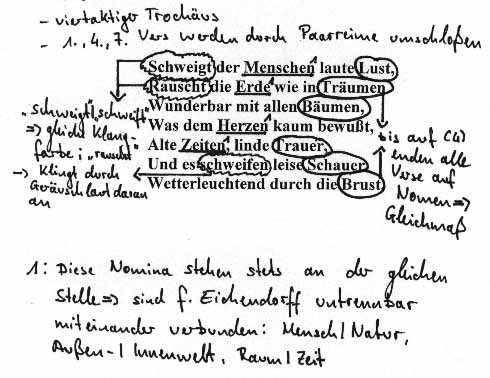 - viertaktiger Trochäus
- 1., 4., 7. Vers werden durch Paarreime umschloßen
Schweigt der Menschen laute Lust,
Rauscht die Erde wie in Träumen
Wunderbar mit allen Bäumen,
Was dem Herzen kaum bewußt,
Alte Zeiten, linde Trauer,
Und es schweifen leise Schauer
Wetterleuchtend durch die Brust.
"schweigt", "schweift"
=> gleiche Klang-
farbe; "rauscht"
-> klingt durch
Geräuschlaut daran
an
bis auf (4)
enden alle
Verse auf
Nomen =>
Gleichmaß
1: Diese Nomina stehen stets an der gleichen
Stelle => sind f. Eichendorff untrennbar
miteinander verbunden: Mensch/Natur,
Außen-/Innenwelt, Raum/Zeit